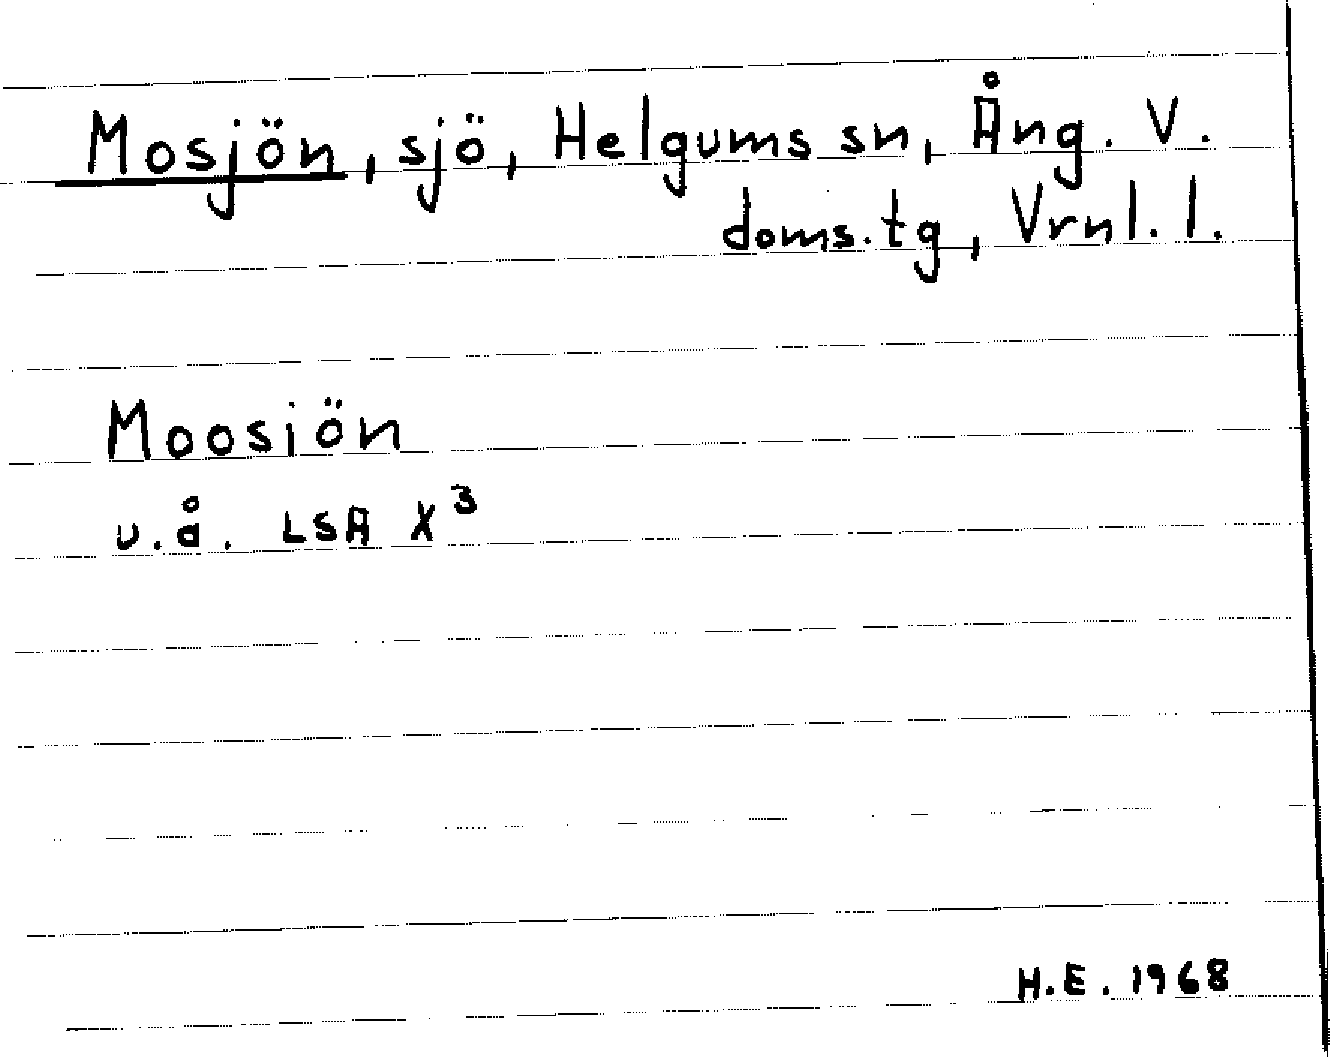 Mosjön, sjö, Helgums sn, Ång. V.
doms.tg, Vrnl. l.
Moosiön
u.å. LSA X³
H.E. 1968